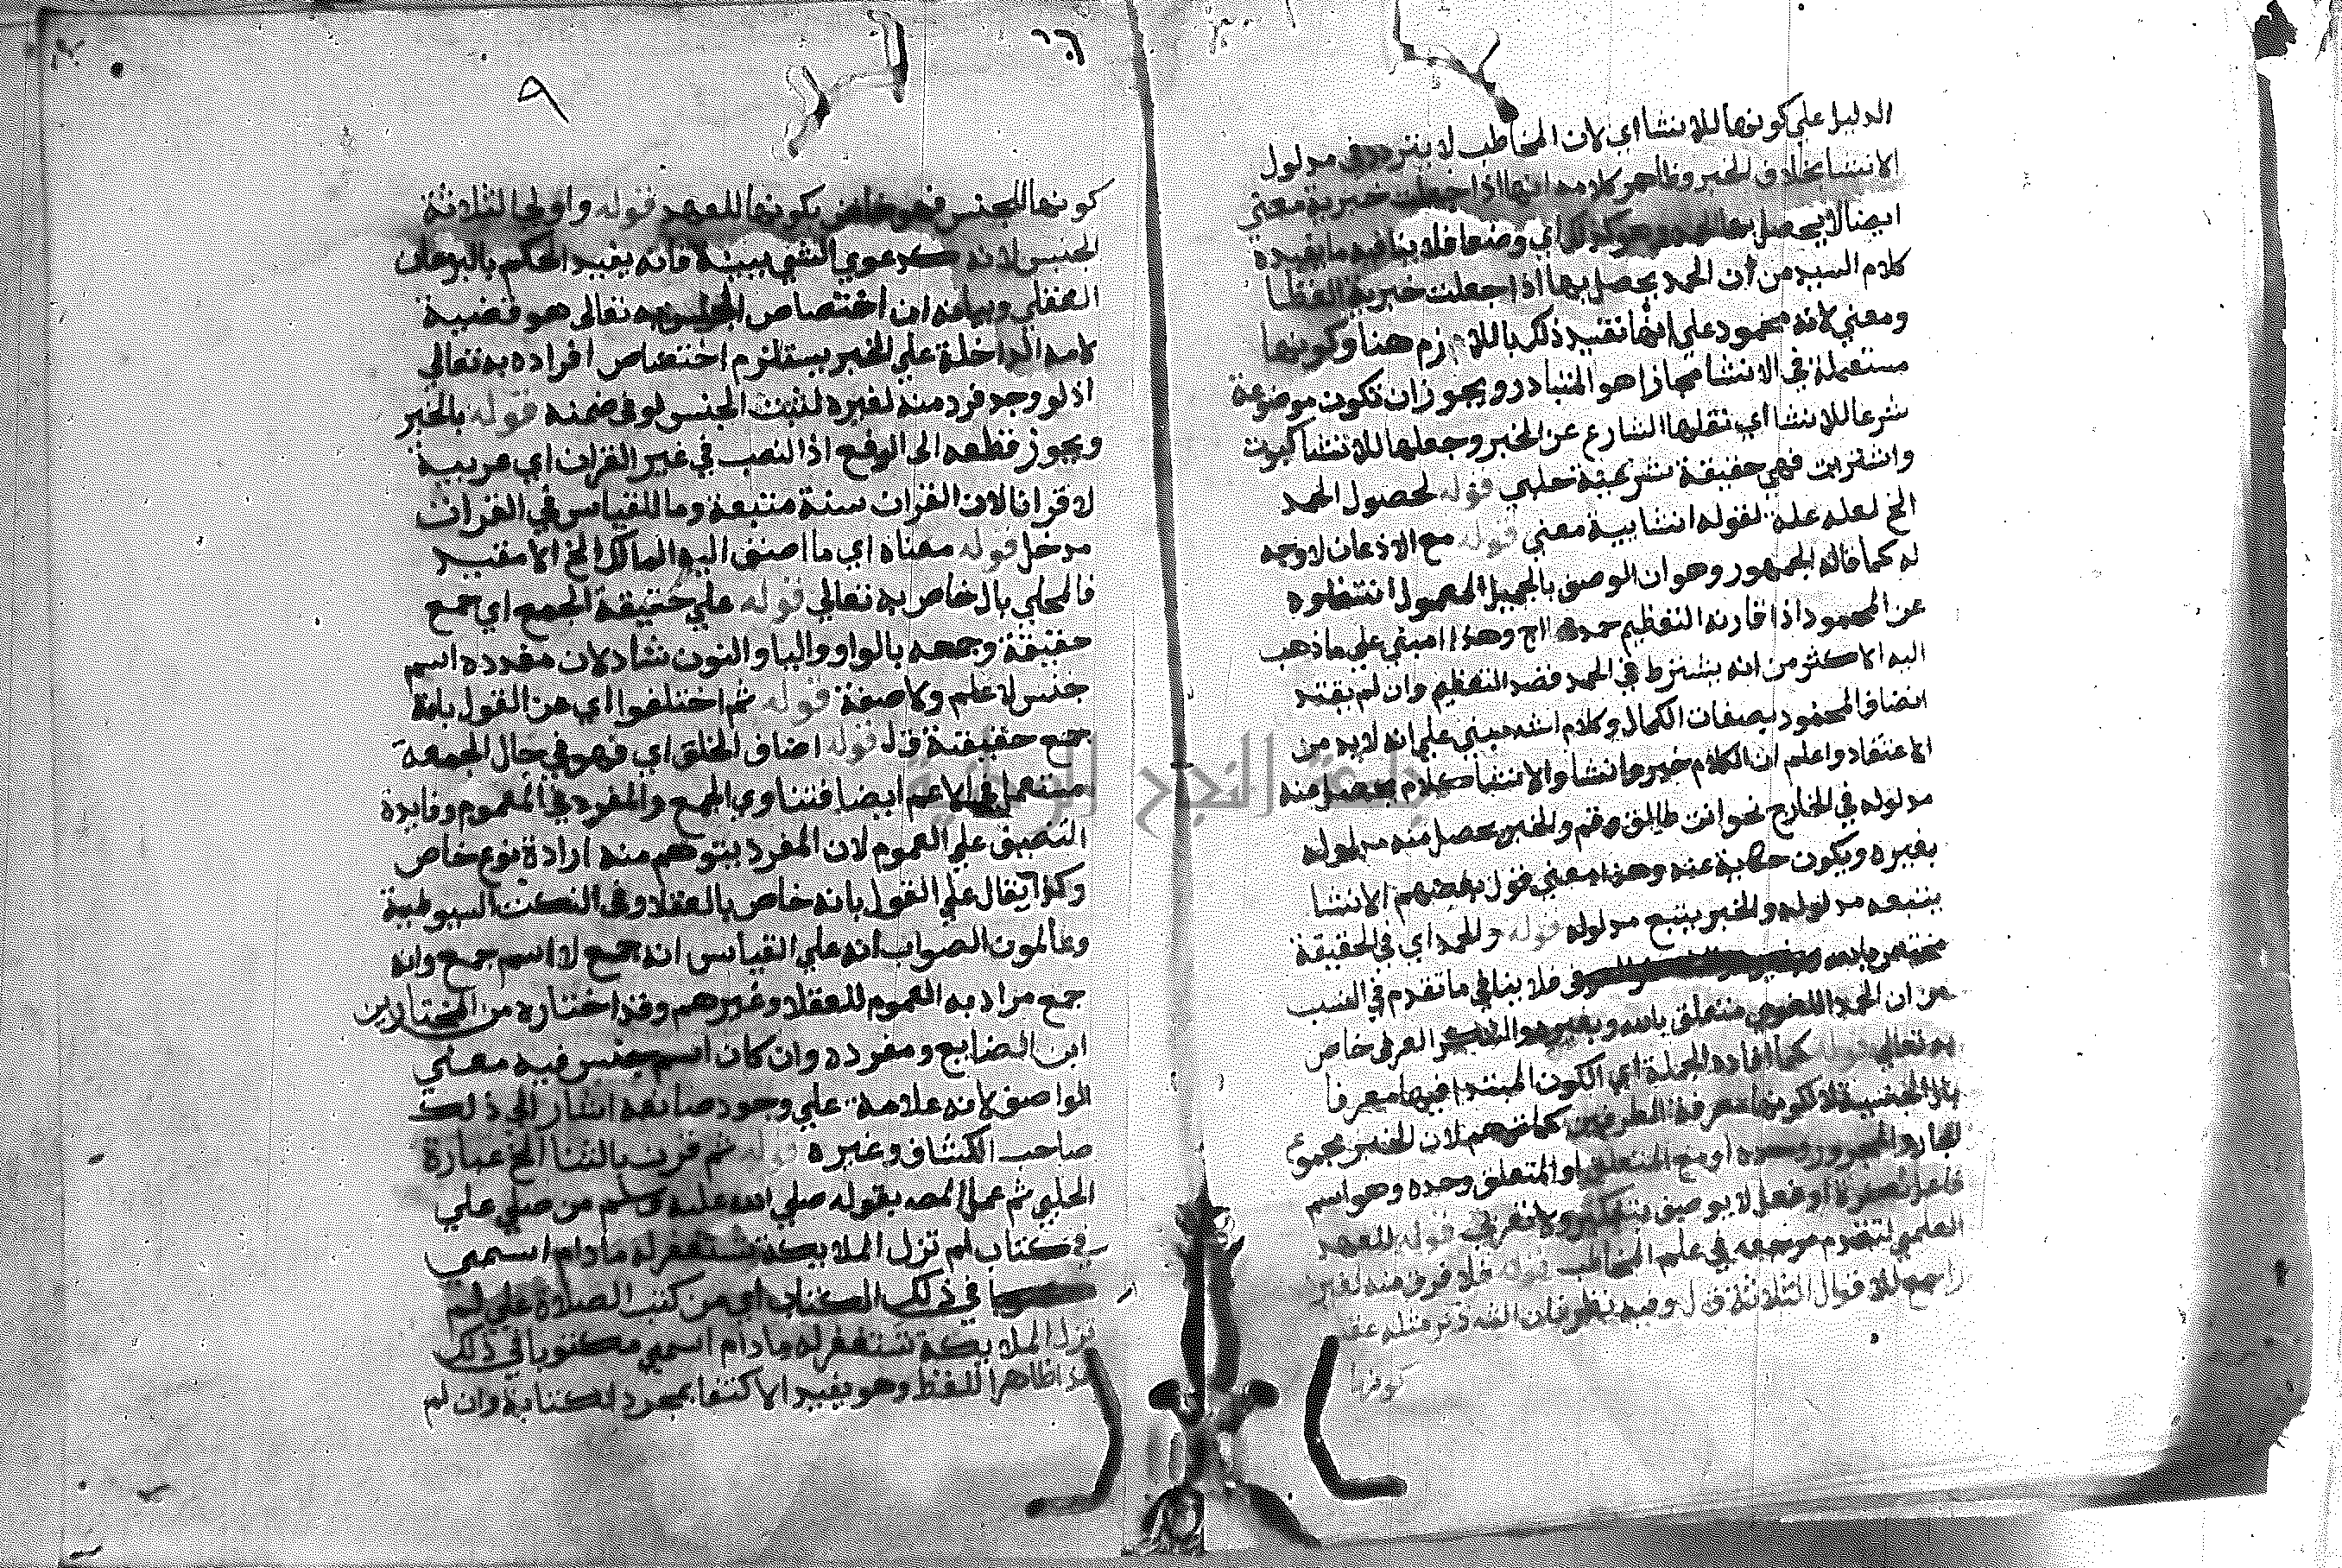 الدليل علي كونها للانشا اي لان المخاطب لا يتردد في مدلول
الانشا بخلاف الخبر وظاهر كلامه انها اذا جعلت خبرية معني
ايضا لا يحصل بها الحمد وهو كذلك اي وضعا فلا ينافيه ما يفيده
كلام السيد من ان الحمد يحصل بها اذا جعلت خبرية لفظا
ومعني لانه محمود علي انها تفيد ذلك باللازم هنا وكونها
مستعملة في الانشا مجازا هو المتبادر ويجوز ان تكون موضوعة
شرعا للانشا اي نقلها الشارع عن الخبر وجعلها للانشا كبعت
واشتريت فهي حقيقة شرعية حلبي قوله لحصول الحمد
الخ لعله علة لقوله انشايية معني قوله مع الاذعان لا وجه
له كما قاله الجمهور وهو ان الوصف بالجميل
عن المحمود اذا قارنه التعظيم حمد وهذا مبني علي ما ذهب
اليه الاكثر من انه يشترط في الحمد قصد التعظيم وان لم يعتقد
اتصاف المحمود بصفات الكمال وكلام الشه مبني علي انه لا بد من
الاعتقاد واعلم ان الكلام خبر وانشا والانشا كلام يحصل منه
مدلوله في الخارج نحو انت طالق وقم والخبر يحصل منه مدلوله
بغيره ويكون حكاية عنه وهذا معني قول بعضهم الانشا
يتبعه مدلوله والخبر يتبع مدلوله قوله والحمد اي في الحقيقة
مختص بالله فلا ينافي ما تقدم في النسب
من ان الحمد اللغوي متعلق بالله وبغيره والشكر العرفي خاص
به تعالي قوله كما افاده الجملة اي الكون المبتدا فيها معرفا
بال الجنسية لا لكونها معرفة الطرفين لان الخبر مجموع
الجار والمجرور وحده او مع المتعلق او المتعلق وحده وهو اسم
فاعل او فعل لا يوصف بتنكير ولا تعريف قوله للعهد
العلمي لتقدم مرجعه في علم المخاطب قوله فلا فرد منه لغيره
راجع للاقوال الثلاثة ق ل وفيه نظر فان الشه ذكر مثله عقب
كونها
٩
كونها للجنس فهو خاص بكونها للعهد قوله واولي الثلاثة
الجنس لانه كدعوي الشي ببينة فانه يفيد الحكم بالبرهان
العقلي وبيانه ان اختصاص الجنس به تعالي هو قضية
لامه الداخلة علي الخبر يستلزم اختصاص افراده به تعالي
اذ لو وجد فرد منه لغيره لثبت الجنس له في ضمنه قوله بالخبر
ويجوز قطعه الي الرفع اذ النصب في غير القران اي عربية
لا قرانا لان القران سنة متبعة وما للقياس في القران
مدخل قوله معناه اي ما اضيف اليه المالك الخ الا مقيد
فالمحلي بال خاص به تعالي قوله علي حقيقة الجمع اي جمع
حقيقة وجمعه بالواو والياو والنون شاذ لان مفرده اسم
جنس لا علم ولا صفة قوله ثم اختلفوا اي من القول بانه
جمع حقيقة ق ل قوله اصناف الخلق اي فهو في حال الجمعية
مستعمل في الاعم ايضا فتساوي الجمع والمفرد في العموم وفايدة
التنصيص علي العموم لان المفرد يتوهم منه ارادة نوع خاص
وكذا يقال علي القول بانه خاص بالعقلا وفي النكت السيوطية
وعالمون الصواب انه علي القياس انه جمع لا اسم جمع وانه
جمع مراد به العموم للعقلا وغيرهم وقد اختاره من المختارين
ابن الضايع ومفرده وان كان اسم جنس فيه معني
الواصف لانه علامة علي وجود صانعه اشار الي ذلك
صاحب الكشاف وغيره قوله ثم قرن بالثنا الخ عبارة
الحلبي ثم عملا المصه بقوله صلي الله عليه وسلم من صلي علي
في كتاب لم تزل الملايكة تستغفر له ما دام اسمي
في ذلك الكتاب اي من كتب الصلاة علي لم
تزل الملايكة تستغفر له ما دام اسمي مكتوبا في ذلك
هذا ظاهر اللفظ وهو يفيد الاكتفا بمجرد الكتابة وان لم
جامعة النجاح الوطنية